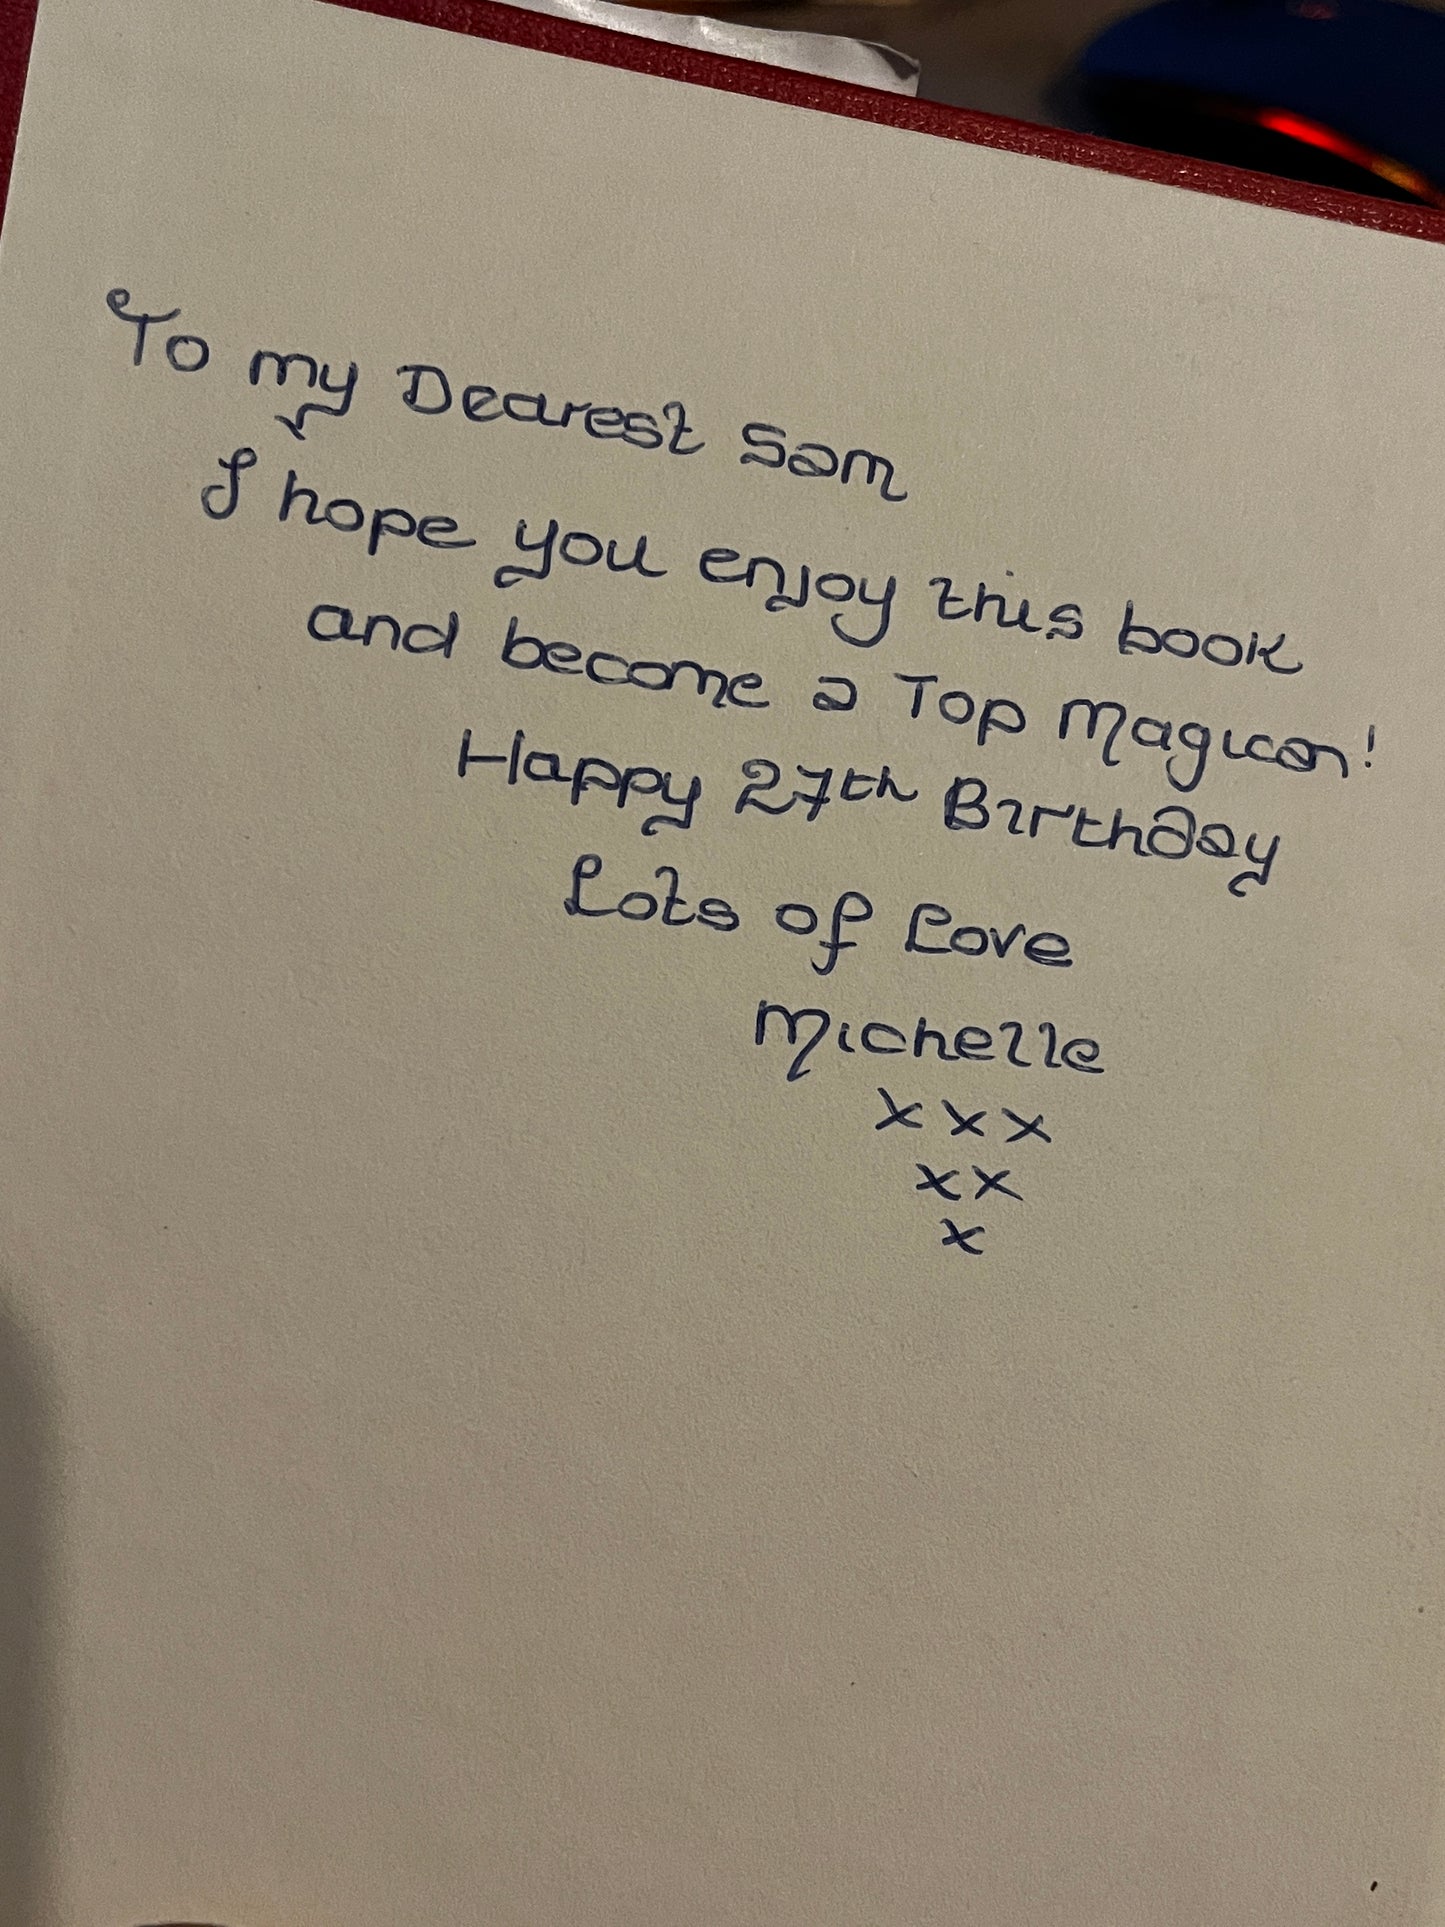 To my Dearest Sam
I hope you enjoy this book
and become a Top Magican!
Happy 27th Birthday
Lots of Love
Michelle
x x x
x x
x